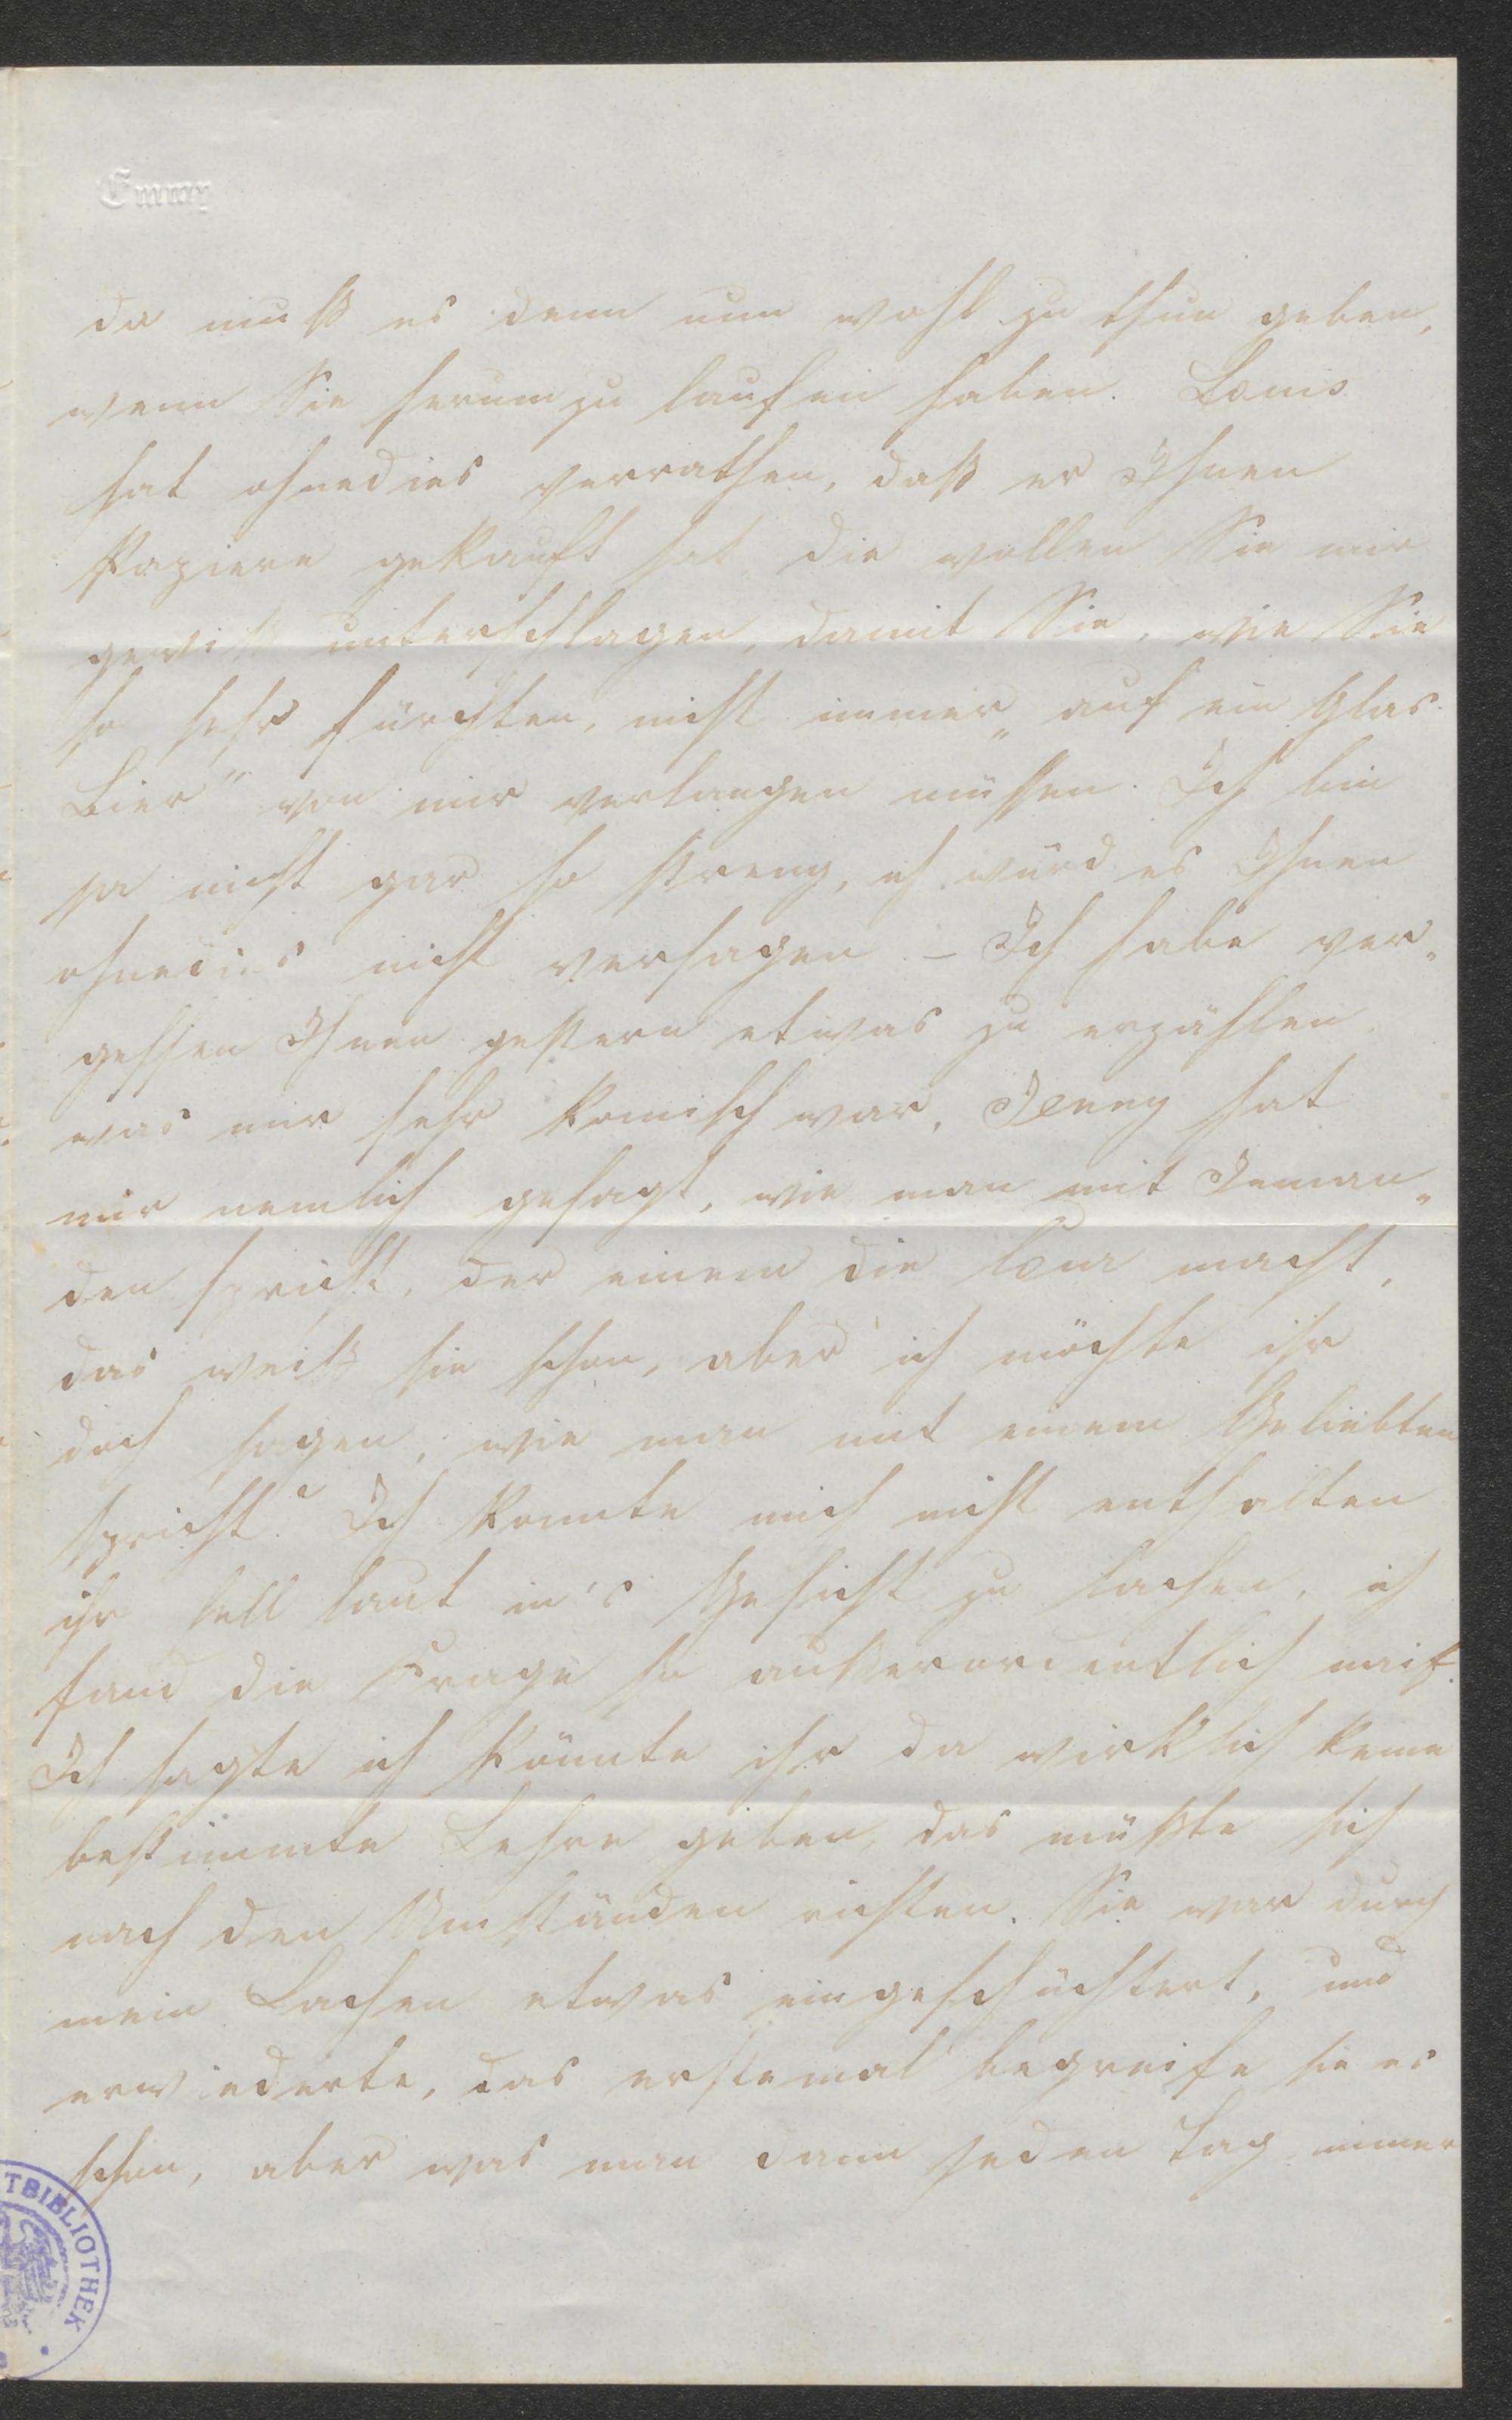 Emmy
da muß es denn nun wohl zu thun geben,
wenn Sie herum zu laufen haben. Louis
hat ohnedies verrathen, daß er Ihnen
Papiere gekauft hat, die wollen Sie mir
gewiß unterschlagen, damit Sie, wie Sie
so sehr fürchten, nicht immer „auf ein Glas
Bier" von mir verlangen müssen. Ich bin
ja nicht gar so streng, ich würd es Ihnen
ohnedies nicht versagen – Ich habe ver-
gessen Ihnen gestern etwas zu erzählen
was mir sehr komisch war, Jenny hat
mir nemlich gesagt, wie man mit Jeman-
den spricht, der einem die Cour macht,
das weiß sie schon, aber ich möchte ihr
doch sagen, wie man mit einem Geliebten
spricht? Ich konnte mich nicht enthalten
ihr hell laut in's Gesicht zu lachen, ich
fand die Frage so außerordentlich naif.
Ich sagte ich könnte ihr da wirklich keine
bestimmte Lehre geben, das müßte sich
nach den Umständen richten. Sie war durch
mein Lachen etwas eingeschüchtert, und
erwiederte, das erstemal begreife sie es
schon, aber was man dann jeden Tag immer
TBIBLIOTHEK